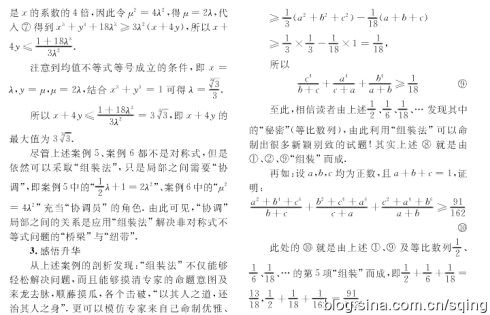 是 x 的系数的 4 倍,因此令 μ² = 4λ²,得 μ = 2λ,代
入⑦得到 x³ + y³ + 18λ³ ≥ 3λ²(x + 4y),所以 x +
4y ≤ (1 + 18λ³)/(3λ²).
注意到均值不等式等号成立的条件,即 x =
λ,y = μ,μ = 2λ,结合 x³ + y³ = 1 可得 λ = ∛3/3.
所以 x + 4y ≤ (1 + 18λ³)/(3λ²) = 3∛3,即 x + 4y 的
最大值为 3∛3.
尽管上述案例 5、案例 6 都不是对称式,但是
依然可以采取“组装法”,只是局部之间需要“协
调”,即案例 5 中的“1/2 λ + 1 = 2λ²”、案例 6 中的“μ²
= 4λ²”充当“协调员”的角色.由此可见,“协调”
局部之间的关系是应用“组装法”解决非对称式不
等式问题的“桥梁”与“纽带”.
3.感悟升华
从上述案例的剖析发现:“组装法”不仅能够
轻松解决问题,而且能够摸清专家的命题意图及
来龙去脉,顺藤摸瓜,各个击破,“以其人之道,还
治其人之身”.更可以模仿专家来自己命制优雅、
≥ 1/3 (a² + b² + c²) − 1/18 (a + b + c)
≥ 1/3 × 1/3 − 1/18 × 1 = 1/18,
所以
c³/(b + c) + a³/(c + a) + b³/(a + b) ≥ 1/18 ⑨
至此,相信读者由上述 1/2、1/6、1/18、… 发现其中
的“秘密”(等比数列),由此利用“组装法”可以命
制出很多新颖别致的试题!其实上述 ⑧ 就是由
①、②、⑨“组装”而成.
再如:设 a,b,c 均为正数,且 a + b + c = 1,证
明:
≥ 91/162
⑩
此处的 ⑩ 就是由上述 ①、⑨ 及等比数列 1/2、
1/6、1/18、… 的第 5 项“组装”而成,即 1/2 + 1/6 + 1/18 =
13/18, 1/2 + 1/18 + 1/162 = 91/162
blog.sina.com.cn/sqing